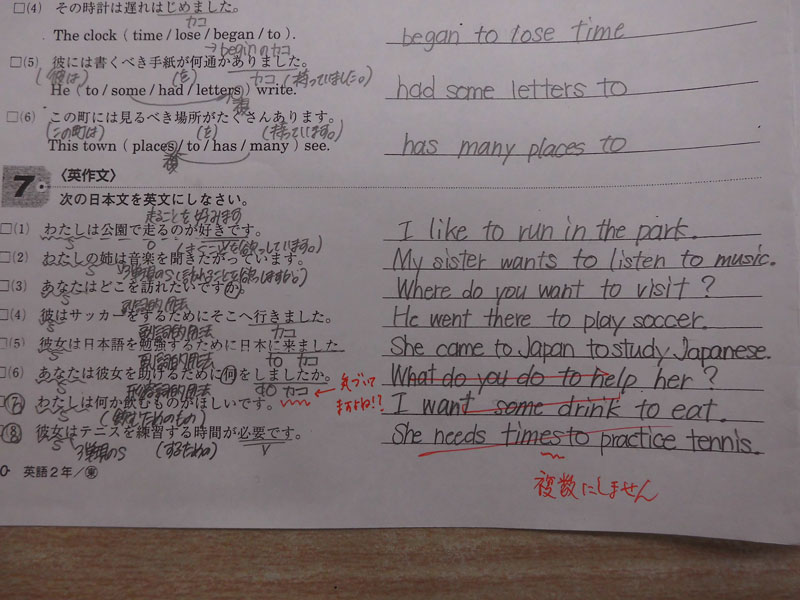 □(4) その時計は遅れはじめました。
カコ
The clock ( time / lose / began / to ). began to lose time
→beginのカコ
□(5) 彼には書くべき手紙が何通かありました。
(彼は) (を) カコ (持っていました。)
He ( to / some / had / letters ) write. had some letters to
複
□(6) この町には見るべき場所がたくさんあります。
(この町は) (を) (持っています。)
This town ( places / to / has / many ) see. has many places to
複
7 〈英作文〉
次の日本文を英文にしなさい。
走ることを好みます
□(1) わたしは公園で走るのが好きです。 I like to run in the park.
S O
□(2) わたしの姉は音楽を聞きたがっています。 My sister wants to listen to music.
S
□(3) あなたはどこを訪れたいですか。 Where do you want to visit ?
S 副詞的用法
□(4) 彼はサッカーをするためにそこへ行きました。 He went there to play soccer.
S 副詞的用法 カコ
□(5) 彼女は日本語を勉強するために日本に来ました She came to Japan to study Japanese.
S 副詞的用法 to カコ
□(6) あなたは彼女を助けるために何をしましたか。 What do you do to help her ?
S 形容詞的用法 do カコ ← 気づいてますよね!?
□(7) わたしは何か飲むものがほしいです。 I want some drink to eat.
S (飲むためのもの)
□(8) 彼女はテニスを練習する時間が必要です。 She needs times to practice tennis.
S (するための) V
複数にしません
英語2年/